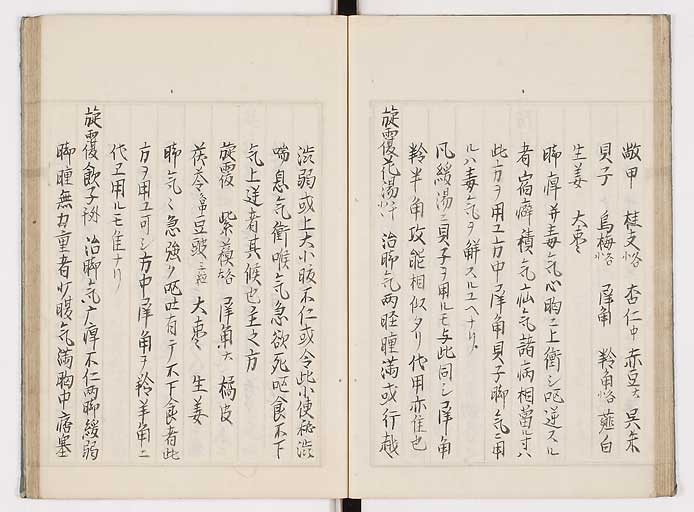 敝甲 桂支 杏仁中 赤豆大 呉朱
貝子 烏梅 犀角 羚角 薤白
生姜 大枣
脚痺并毒气心胸ニ上衝シ呕逆スル
者宿癖積气疝气諸病相當ルナリ
此方ヲ用ユ方中犀角貝子脚气ニ用
ルハ毒气ヲ觧スルユヘナリ
凡緩湯ニ貝子ヲ用ルモ与此同シ犀角
羚羊角攻能相似タリ代用亦隹也
旋覆花湯 治脚气两脛腫満或行越
渋弱或上大小腹不仁或令此小便秘渋
喘息气衝喉气急欲死呕食不下
气上逆者其候也主之方
旋覆 紫蘇 犀角大 橘皮
茯苓 豆豉 大枣 生姜
脚气ニ急強ク呕吐有テ不下食者此
方ヲ用ユ可シ方中犀角ヲ羚羊角ニ
代ヱ用ルモ隹ナリ
旋覆飲子 治脚气广痺不仁两脚緩弱
脚腫無力重者少腹气満胸中痞塞